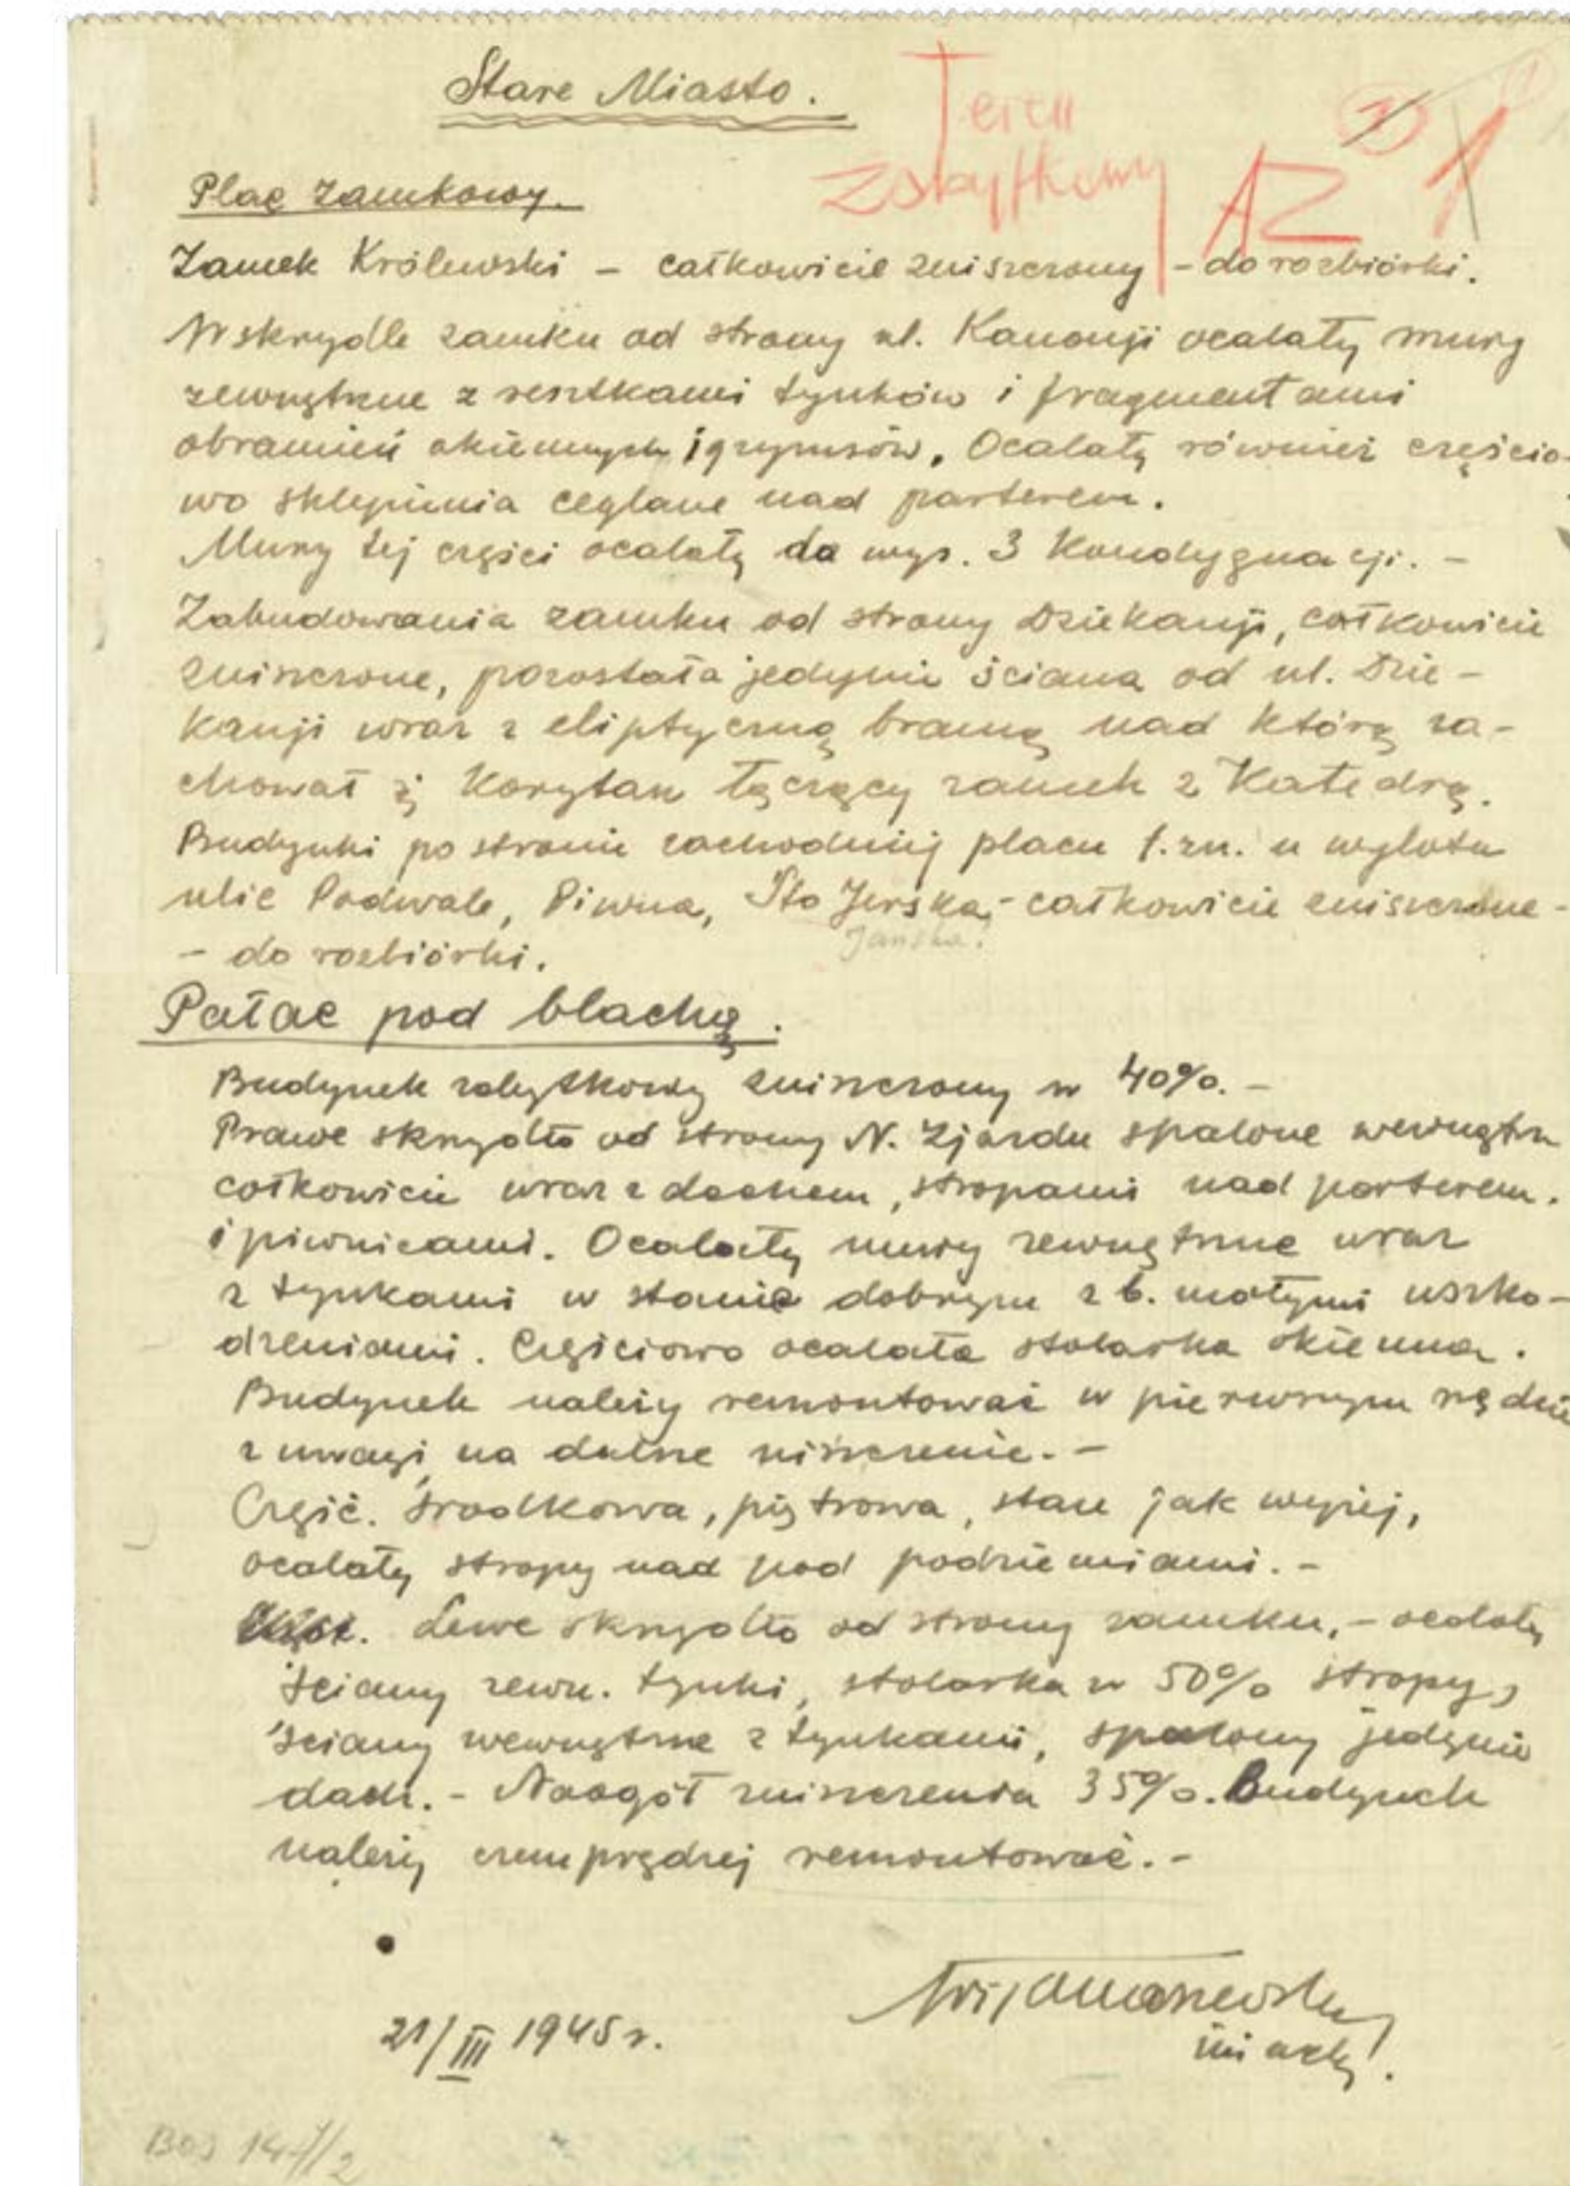 Stare Miasto.
Teren
Zabytkowy
AZ
1
Plac Zamkowy.
Zamek Królewski – całkowicie zniszczony – do rozbiórki.
W skrzydle zamku od strony ul. Kanonji ocalały mury
zewnętrzne z resztkami tynków i fragmentami
obramień okiennych i gzymsów. Ocalały również częścio-
wo sklepienia ceglane nad parterem.
Mury tej części ocalały do wys. 3 kondygnacji. –
Zabudowania zamku od strony Dziekanji, całkowicie
zniszczone, pozostała jedynie ściana od ul. Dzie-
kanji wraz z eliptyczną bramą nad którą za-
chował się korytarz łączący zamek z Katedrą.
Budynki po stronie zachodniej placu t.zn. u wylotu
ulic Podwale, Piwna, Sto Jerska, – całkowicie zniszczone –
Jańska!
– do rozbiórki.
Pałac pod blachą.
Budynek zabytkowy zniszczony w 40%. –
Prawe skrzydło od strony N. Zjazdu spalone wewnątrz
całkowicie wraz z dachem, stropami nad parterem.
i piwnicami. Ocalały mury zewnętrzne wraz
z tynkami w stanie dobrym z b. małymi uszko-
dzeniami. Częściowo ocalała stolarka okienna.
Budynek należy remontować w pierwszym rzędzie
z uwagi na dalsze niszczenie. –
Część. środkowa, piętrowa, stan jak wyżej,
ocalały stropy nad pod podziemiami. –
Lewe skrzydło od strony zamku, – ocalały
ściany zewn. tynki, stolarka w 50% stropy,
ściany wewnętrzne z tynkami, spalony jedynie
dach. – Naogół zniszczenia 35%. Budynek
należy czemprędzej remontować. –
21/III 1945 r.
inż arch.
BOS 147/2